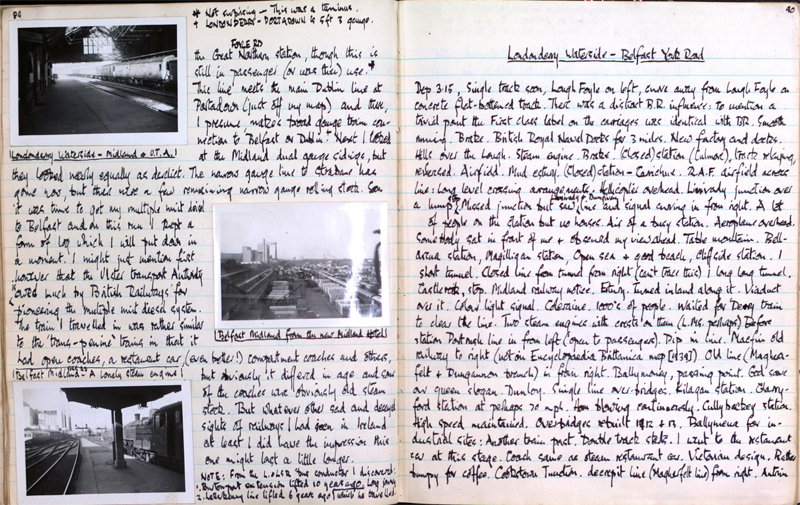 89
* Not surprising - This was a terminus.
+ LONDONDERRY - PORTADOWN is 5ft 3 gauge.
FOYLE RD
the Great Northern station, though this is
still in passenger (or was then) use.*
This line meets the main Dublin line at
Portadown (just off my map) and there,
I presume, makes broad gauge train con-
nection to Belfast or Dublin.+ Next I looked
at the Midland dual gauge sidings, but
Londonderry Waterside - Midland & U.T.A.
they looked nearly equally as derelict. The narrow gauge line to Strabane has
gone now, but there were a few remaining narrow gauge rolling stock. Soon
it was time to get my multiple unit diesel
to Belfast and on this run I kept a
form of log which I will put down in
a moment. I might just mention first
however that the Ulster Transport Authority
owed much by British Railways for
pioneering the multiple unit diesel system.
The train I travelled in was rather similar
to the 'trans-pennine' trains in that it
had open coaches, a restaurant car (even better!) compartment coaches and others,
Belfast Midland from the new Midland Hotel
Belfast Midland A lonely steam engine!
but obviously it differed in age and some
of the coaches were obviously old steam
stock. But whatever other sad and decayed
sights of railways I had seen in Ireland
at least I did have the impression this
one might last a little longer.
NOTE: From the L&LSR bus conductor I discovered:
1. Burtonport extension lifted 10 years ago.
2. Letterkenny line lifted 6 years ago
90
Londonderry Waterside - Belfast York Road
Dep 3.15, Single track soon, Lough Foyle on left, curve away from Lough Foyle on
concrete flat-bottomed track. There was a distinct B.R. influence: to mention a
trivial point the First class label on the carriages was identical with BR. Smooth
running. Brake. British Royal Naval Docks for 3 miles. New factory and docks.
Hills over the Lough. Steam engine. Brake. (Closed) station (Culmore), track relaying,
rehearsed. Airfield. Mud estuary. (Closed) station - Carrichue. R.A.F. airfield across
line: Long level crossing arrangements. Helicopter overhead. Limavady junction over
a hump. Missed junction but saw line and signal curving in from right. A lot
of people on the station but no houses. Air of a busy station. Aeroplane overhead.
Somebody sat in front of me & obscured my view ahead. Table mountain. Bell-
arena station, Magilligan station, Open sea & good beach, Cliffside station. 1
short tunnel. Closed line from tunnel from right (can't trace this) 1 long long tunnel.
Castlerock, stop. Midland railway notice. Estuary. Turned inland along it. Viaduct
over it. Colour light signal. Coleraine. 1000's of people. Waited for Derry train
to clear the line. Two steam engines with crests on them (L.M.S. perhaps) Before
station Portrush line in from left (open to passengers). Dip in line. Macfin old
railway to right (not on Encyclopaedia Britannica map [1939]) Old line (Maghera-
felt & Dungannon branch) in from right. Ballymoney, passing point. God save
our queen slogan. Dunloy. Single line over-bridges. Kilagan station. Glarry-
ford station at perhaps 70 mph. Horn blowing continuously. Cullybackey station.
High speed maintained. Overbridges rebuilt 1912 & 13. Ballymena for in-
dustrial sites: Another train past. Double track starts. I went to the restaurant
car at this stage. Coach same as steam restaurant car. Victorian design. Rather
bumpy for coffee. Cookstown Junction. decrepit line (Magherafelt line) from right. Antrim